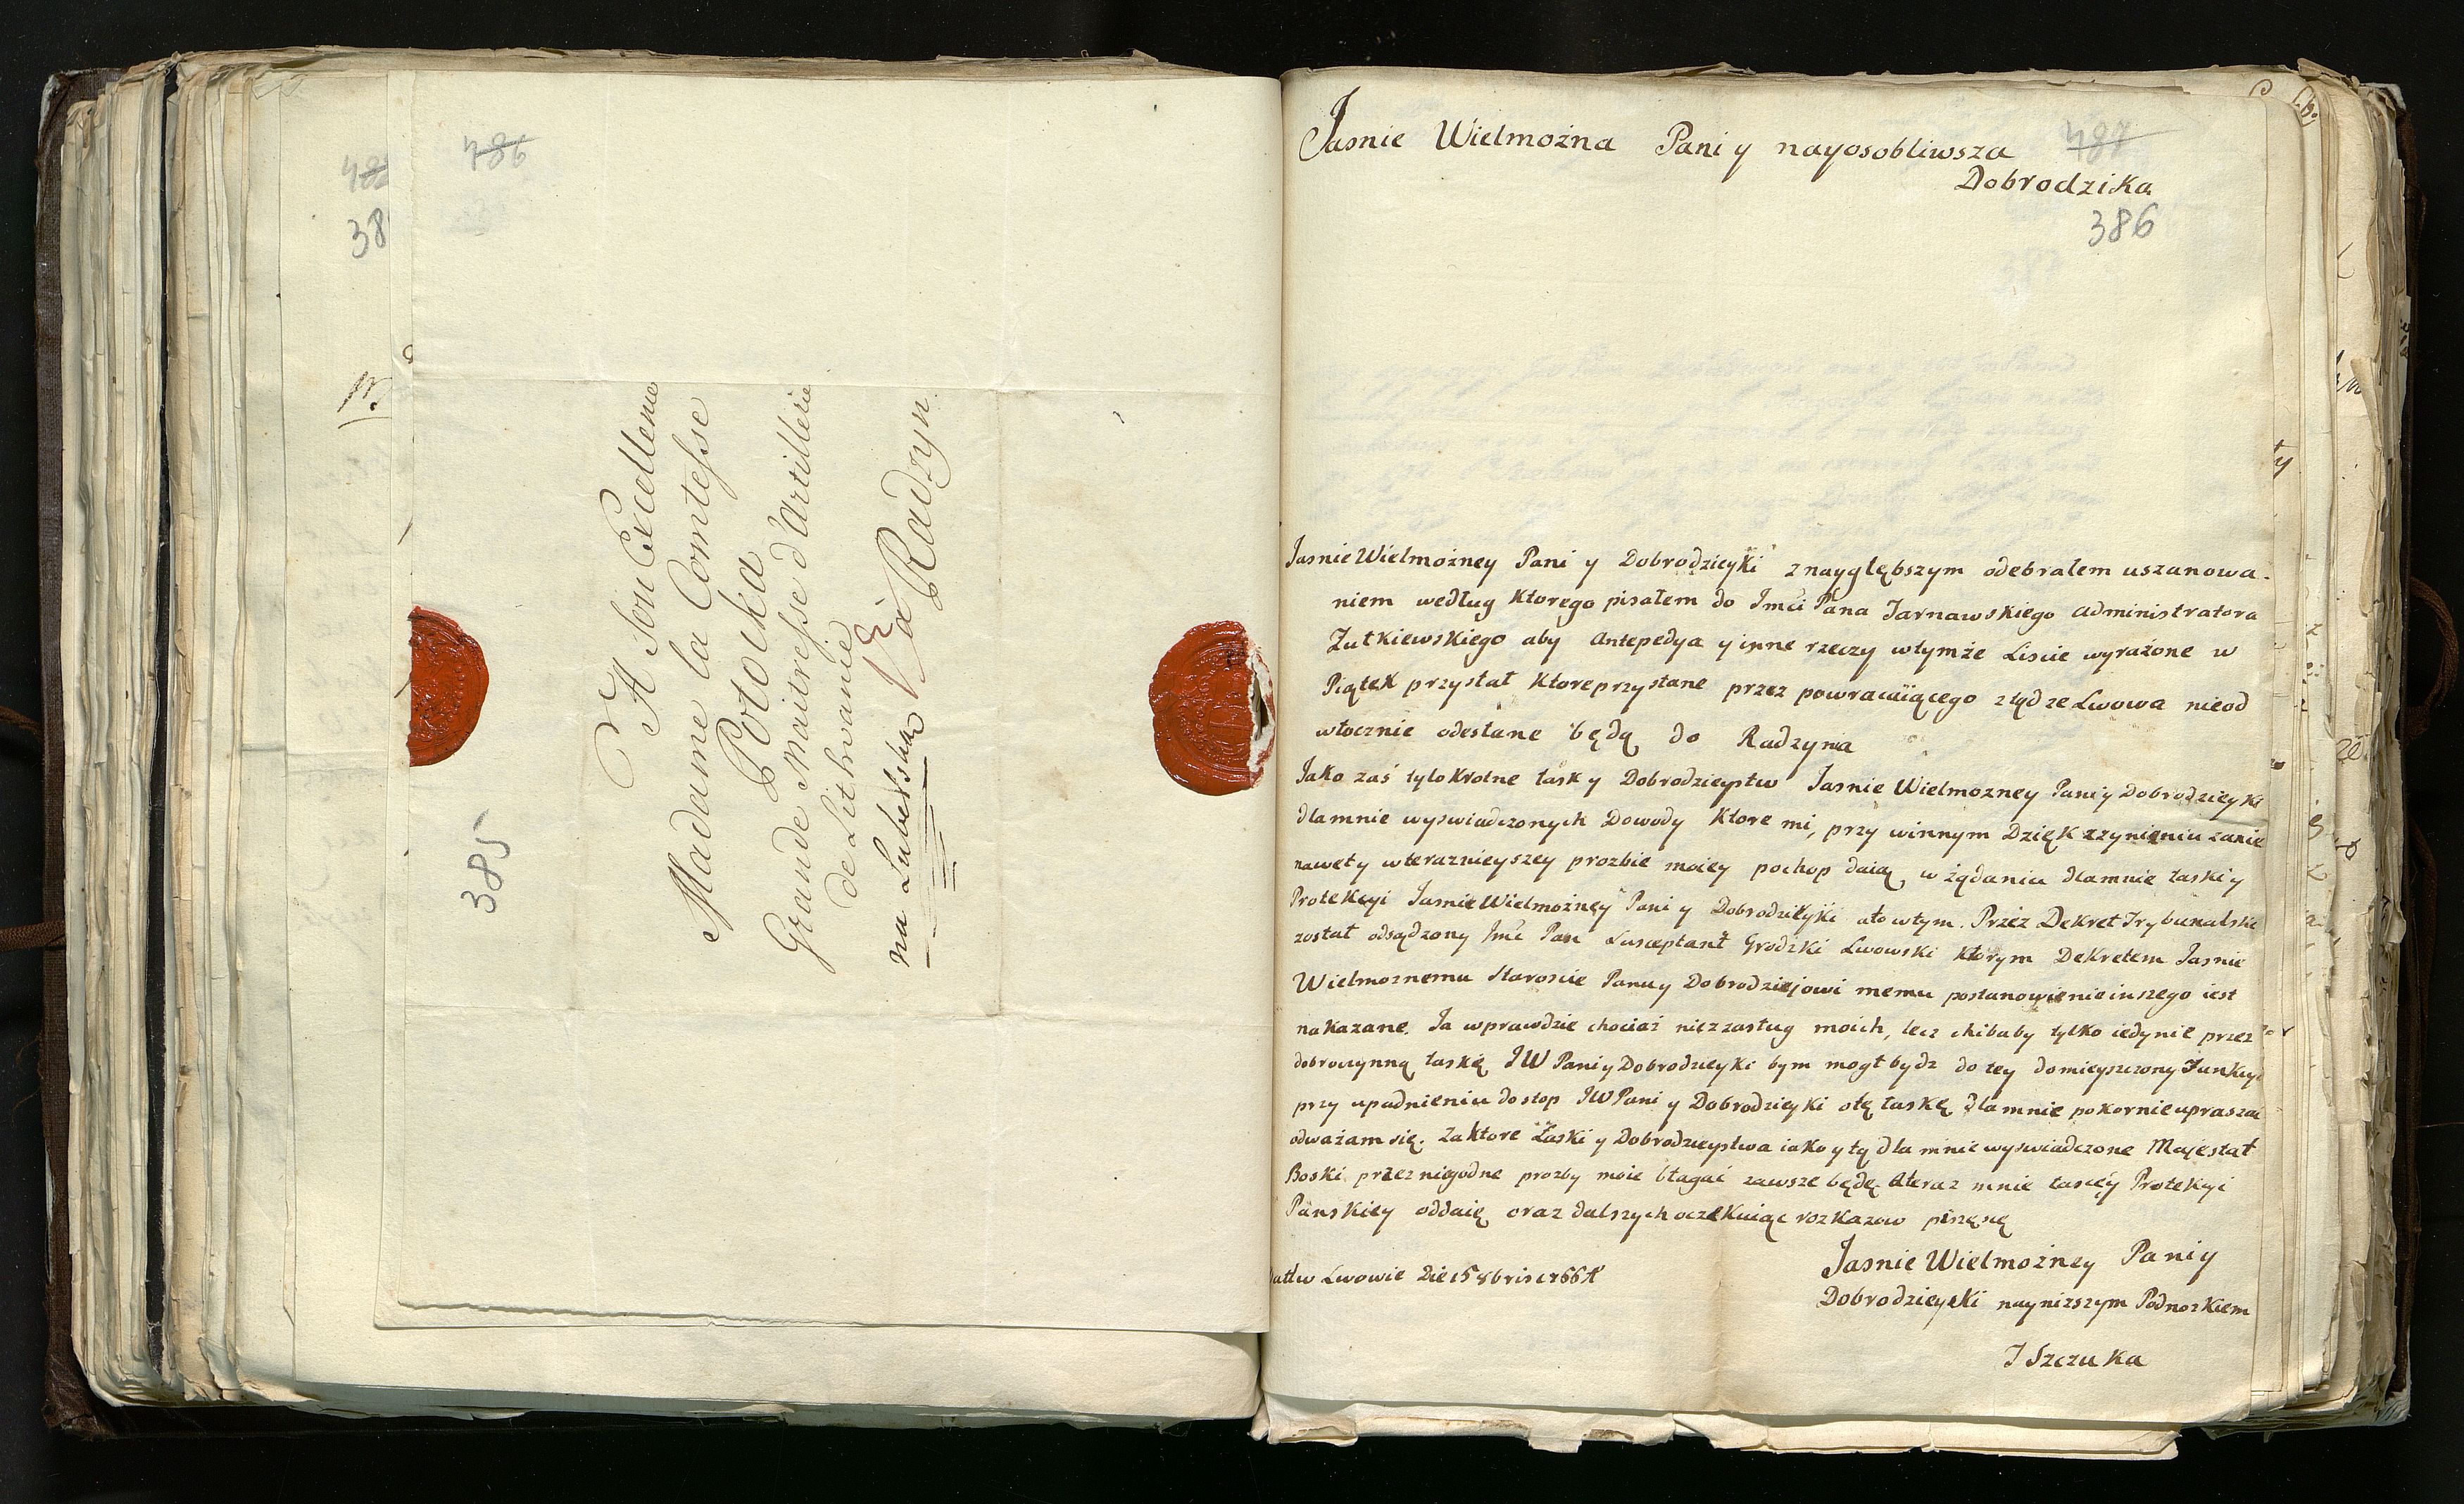 486
385
A Son Excellence
Madame la Comtesse
Potocka
Grande Maitresse d'Artillerie
de Lithwanie
à Radzyn
na Lubelskar
487
Jasnie Wielmożna Pani y nayosobliwsza
Dobrodzika
386
Jasnie Wielmożney Pani y Dobrodzieyki znaygłębszym odebrałem uszanowa-
niem według ktorego pisałem do Imci Pana Jarnawskiego administratora
Żułkiewskiego aby Antepedya y inne rzeczy wtymże Liscie wyrażone w
Piątek przysłał ktore przysłane przez powracaiącego ztąd ze Lwowa nieod
włocznie odesłane będą do Radzyna
Jako zaś tylokrotne łasky Dobrodzieystw Jasnie Wielmozney Pani y Dobrodzieyki
dla mnie wyswiadczonych Dowody ktore mi, przy winnym Dzięk czynieniu zanie
nawet y w teraznieyszey prozbie moiey pochop daią, w żądaniu dla mnie łaski y
Protekcyi Jasnie Wielmożney Pani y Dobrodzieyki ato wtym. Przez Dekret Trybunalski
został odsądzony Imć Pan Susceptant Grodzki Lwowski ktorym Dekretem Jasnie
Wielmoznemu Staroscie Panu y Dobrodziejowi memu postanowienie inszego iest
nakazane. Ja wprawdzie chociaż nie z zasług moich, lecz chibaby tylko iedynie przez
dobroczynną łaskę JW Pani y Dobrodzieyki bym mogł bydz do tey domieyszczony Funkcyi
przy upadnieniu do stop JW Pani y Dobrodzieyki otę łaskę dla mnie pokornie upraszać
odważam się. Za ktore Łaski y Dobrodzieystwa iako y tę dla mnie wyswiadczone Majestat
Boski przez niegodne prozby moie błagać zawsze będę. A teraz mnie łasce y Protekcyi
Pańskiey oddaię oraz dalszych oczekuiąc rozkazow piszę się
Jasnie Wielmożney Pani y
Dobrodzieyki nayniższym Podnozkiem
J Szczuka
Dat w Lwowie Die 15 8bris 1766 A